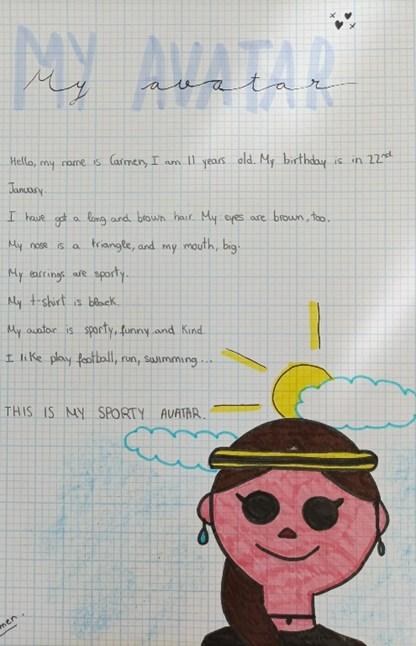 MY AVATAR
My avatar
Hello, my name is Carmen, I am 11 years old. My birthday is in 22nd
January.
I have got a long and brown hair. My eyes are brown, too.
My nose is a triangle, and my mouth, big.
My earrings are sporty.
My t-shirt is black.
My avatar is sporty, funny and kind.
I like play football, run, swimming...
THIS IS MY SPORTY AVATAR.